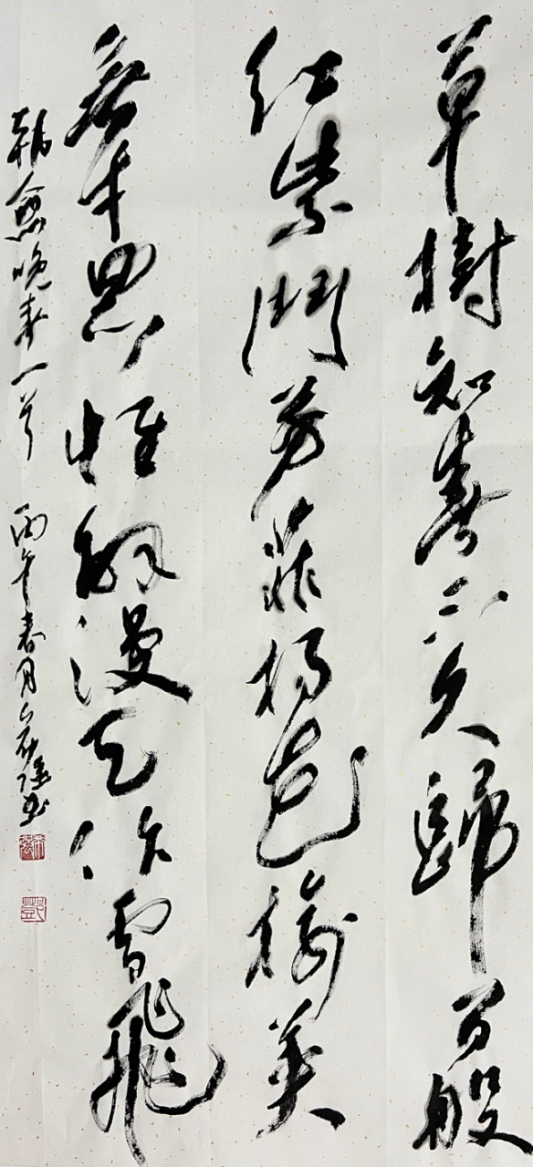 草樹知春不久歸百般
紅紫鬥芳菲楊花榆莢
無才思惟解漫天作雪飛
韓愈晚春一首 丙午春月 书